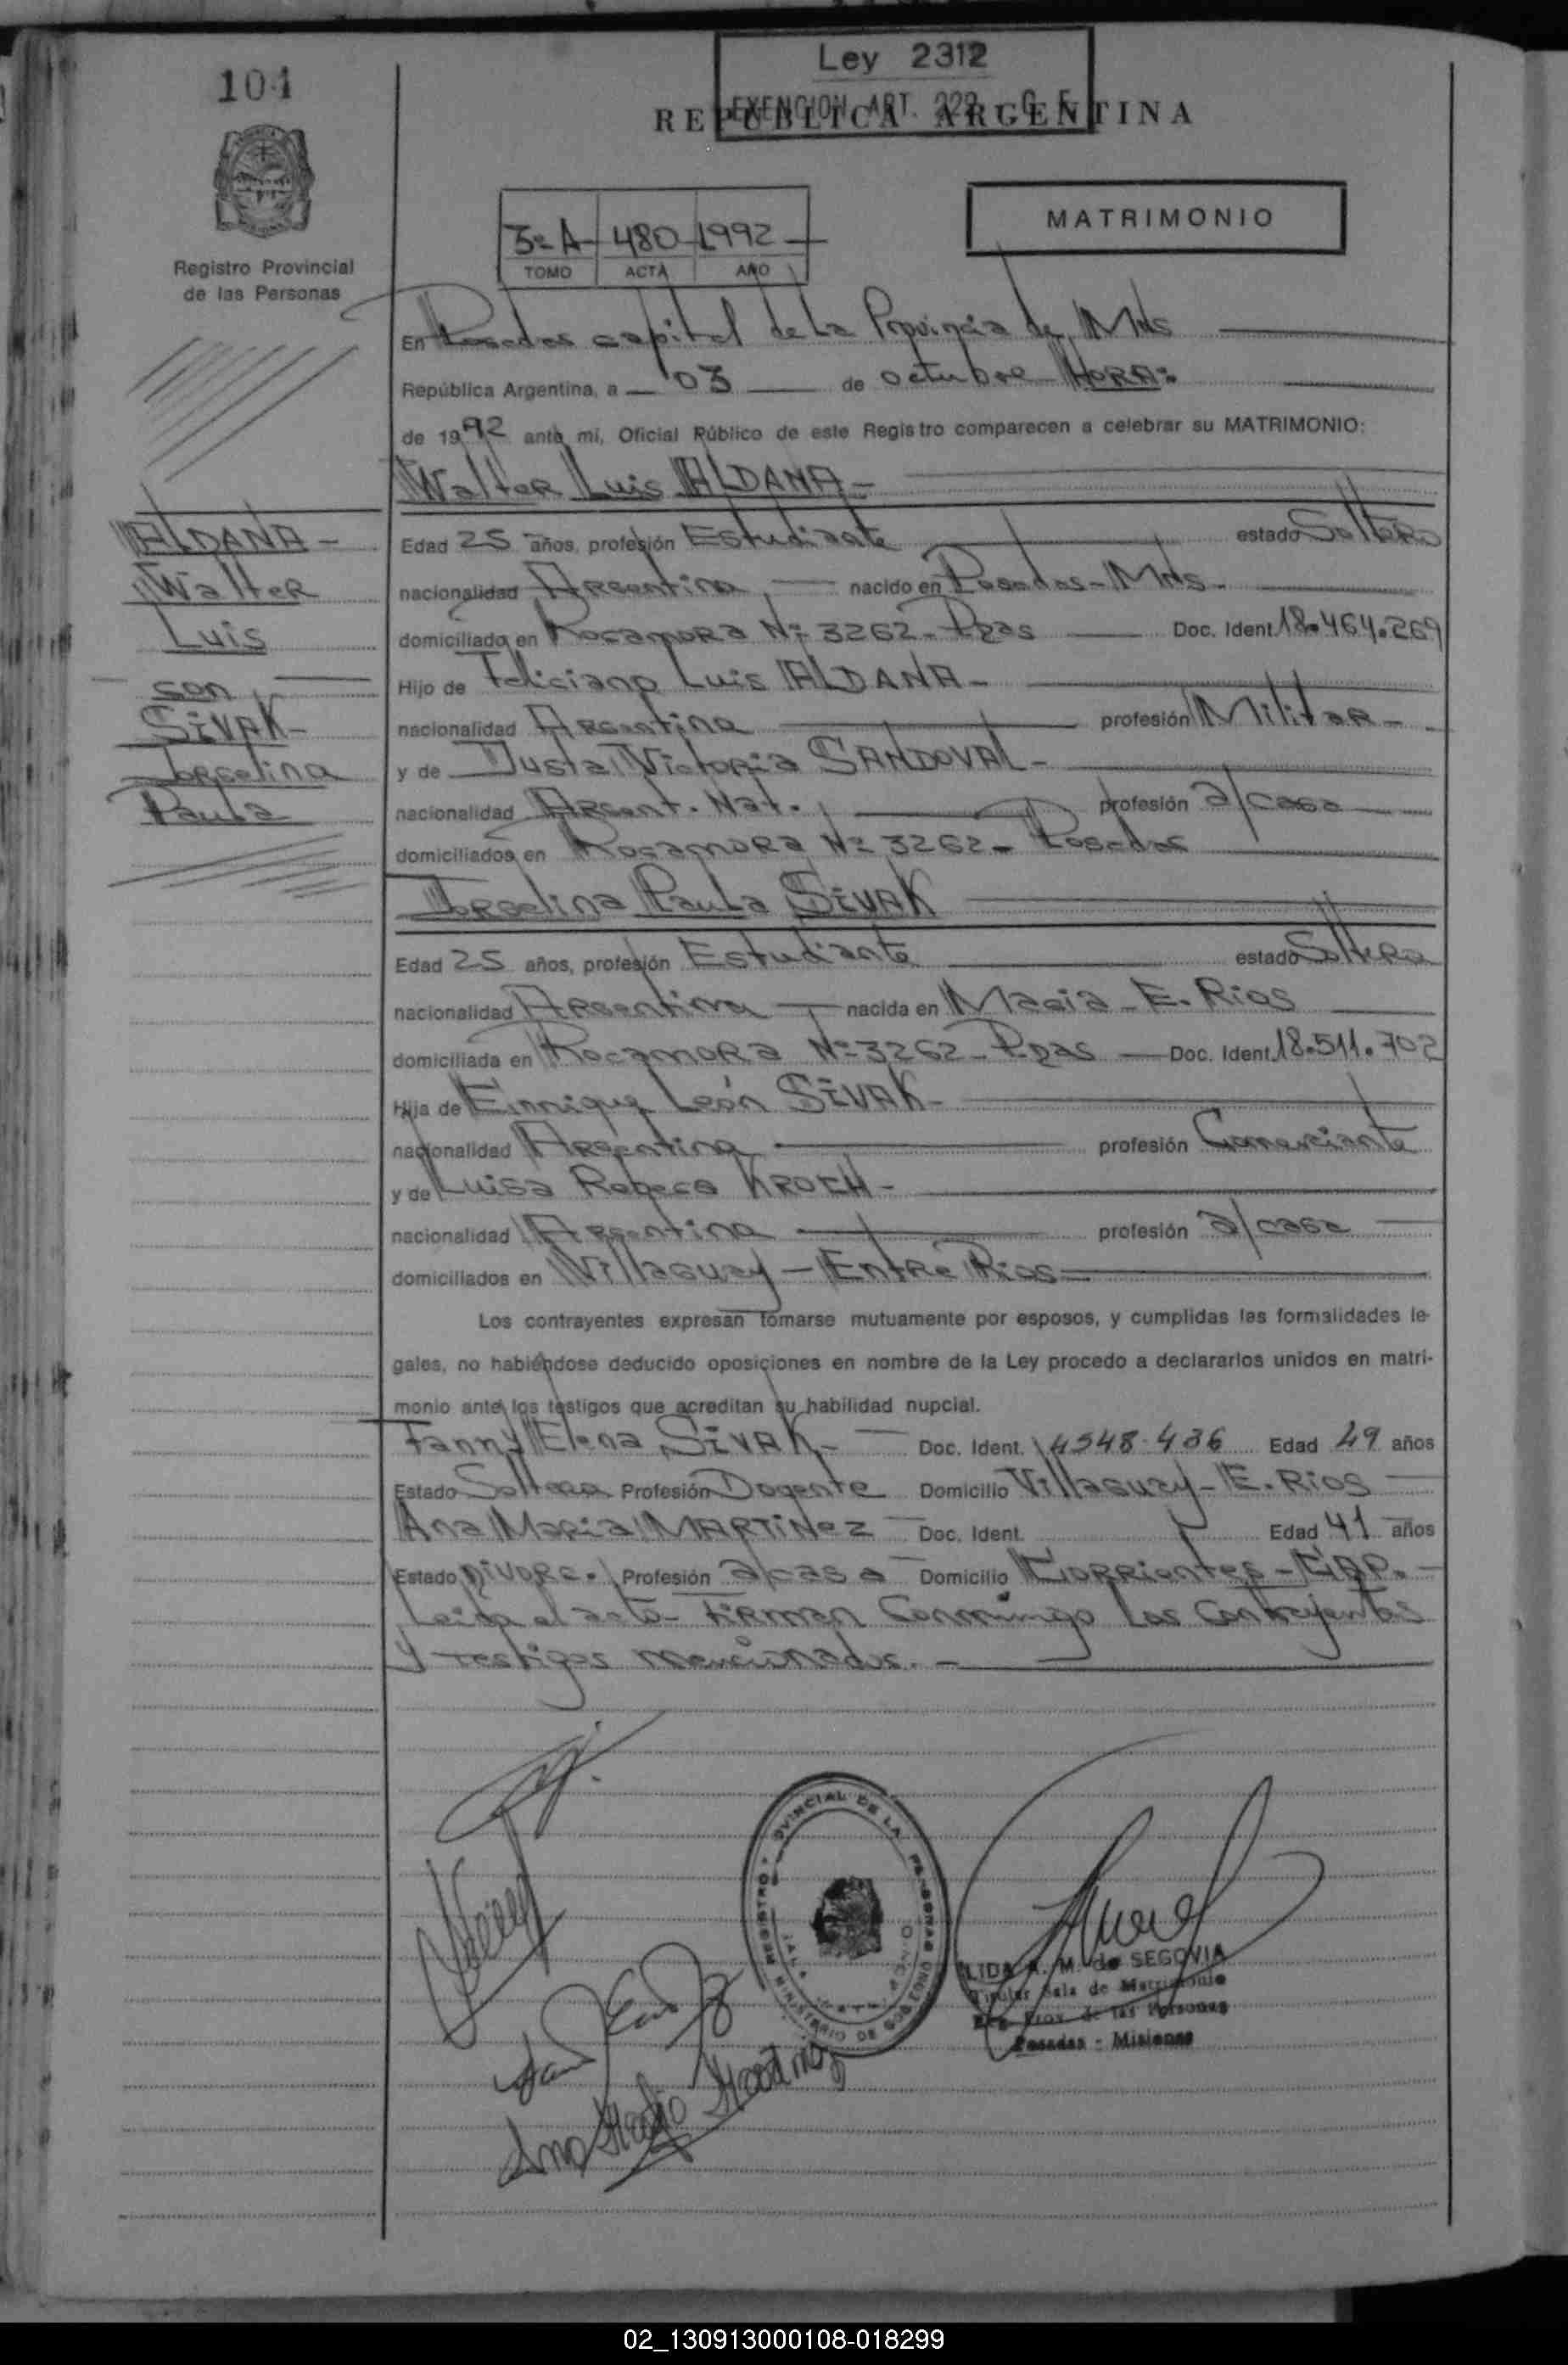 104
Ley 2312
EXENCION ART. 222
REPUBLICA ARGENTINA
MATRIMONIO
3º A 480 1992
TOMO ACTA AÑO
Registro Provincial
de las Personas
En Posadas capital de La Provincia de Mns
República Argentina, a 03 de octubre HORA:
de 1992 ante mi, Oficial Público de este Registro comparecen a celebrar su MATRIMONIO:
Walter Luis ALDANA-
ALDANA-
Walter
Luis
con
SIVAK-
Jorgelina
Paula
Edad 25 años, profesión Estudiante estado Soltero
nacionalidad Argentina nacido en Posadas-Mns-
domiciliado en Rocamora Nº 3262-Pdas Doc. Ident. 18.464.269
Hijo de Feliciano Luis ALDANA-
nacionalidad Argentina profesión Militar-
y de Justa Victoria SANDOVAL-
nacionalidad Argent. Nat. profesión a/casa
domiciliados en Rocamora Nº 3262- Posadas
Jorgelina Paula SIVAK
Edad 25 años, profesión Estudiante estado Soltera
nacionalidad Argentina nacida en Macia-E. Rios
domiciliada en Rocamora Nº 3262-Pdas Doc. Ident. 18.511.702
Hija de Enrique León SIVAK-
nacionalidad Argentina profesión Comerciante
y de Luisa Rebeca KROCH-
nacionalidad Argentina profesión a/casa
domiciliados en Villaguay-Entre Rios-
Los contrayentes expresan tomarse mutuamente por esposos, y cumplidas las formalidades le-
gales, no habiéndose deducido oposiciones en nombre de la Ley procedo a declararlos unidos en matri-
monio ante los testigos que acreditan su habilidad nupcial.
Fanny Elena SIVAK- Doc. Ident. 4548.436 Edad 49 años
Estado Soltera Profesión Docente Domicilio Villaguay-E. Rios
Ana Maria MARTINez Doc. Ident. Edad 41 años
Estado Divorc. Profesión a/casa Domicilio Corrientes-CAP.
Leida el acta- Firman Conmingo Los Contrayentes
y testigos mencionados.-
REGISTRO PROVINCIAL DE LAS PERSONAS
MINISTERIO DE GOBIERNO
Ana Maria Martinez
LIDA A. M. de SEGOVIA
Titular Sala de Matrimonio
Reg. Prov. de las Personas
Posadas - Misiones
02_130913000108-018299